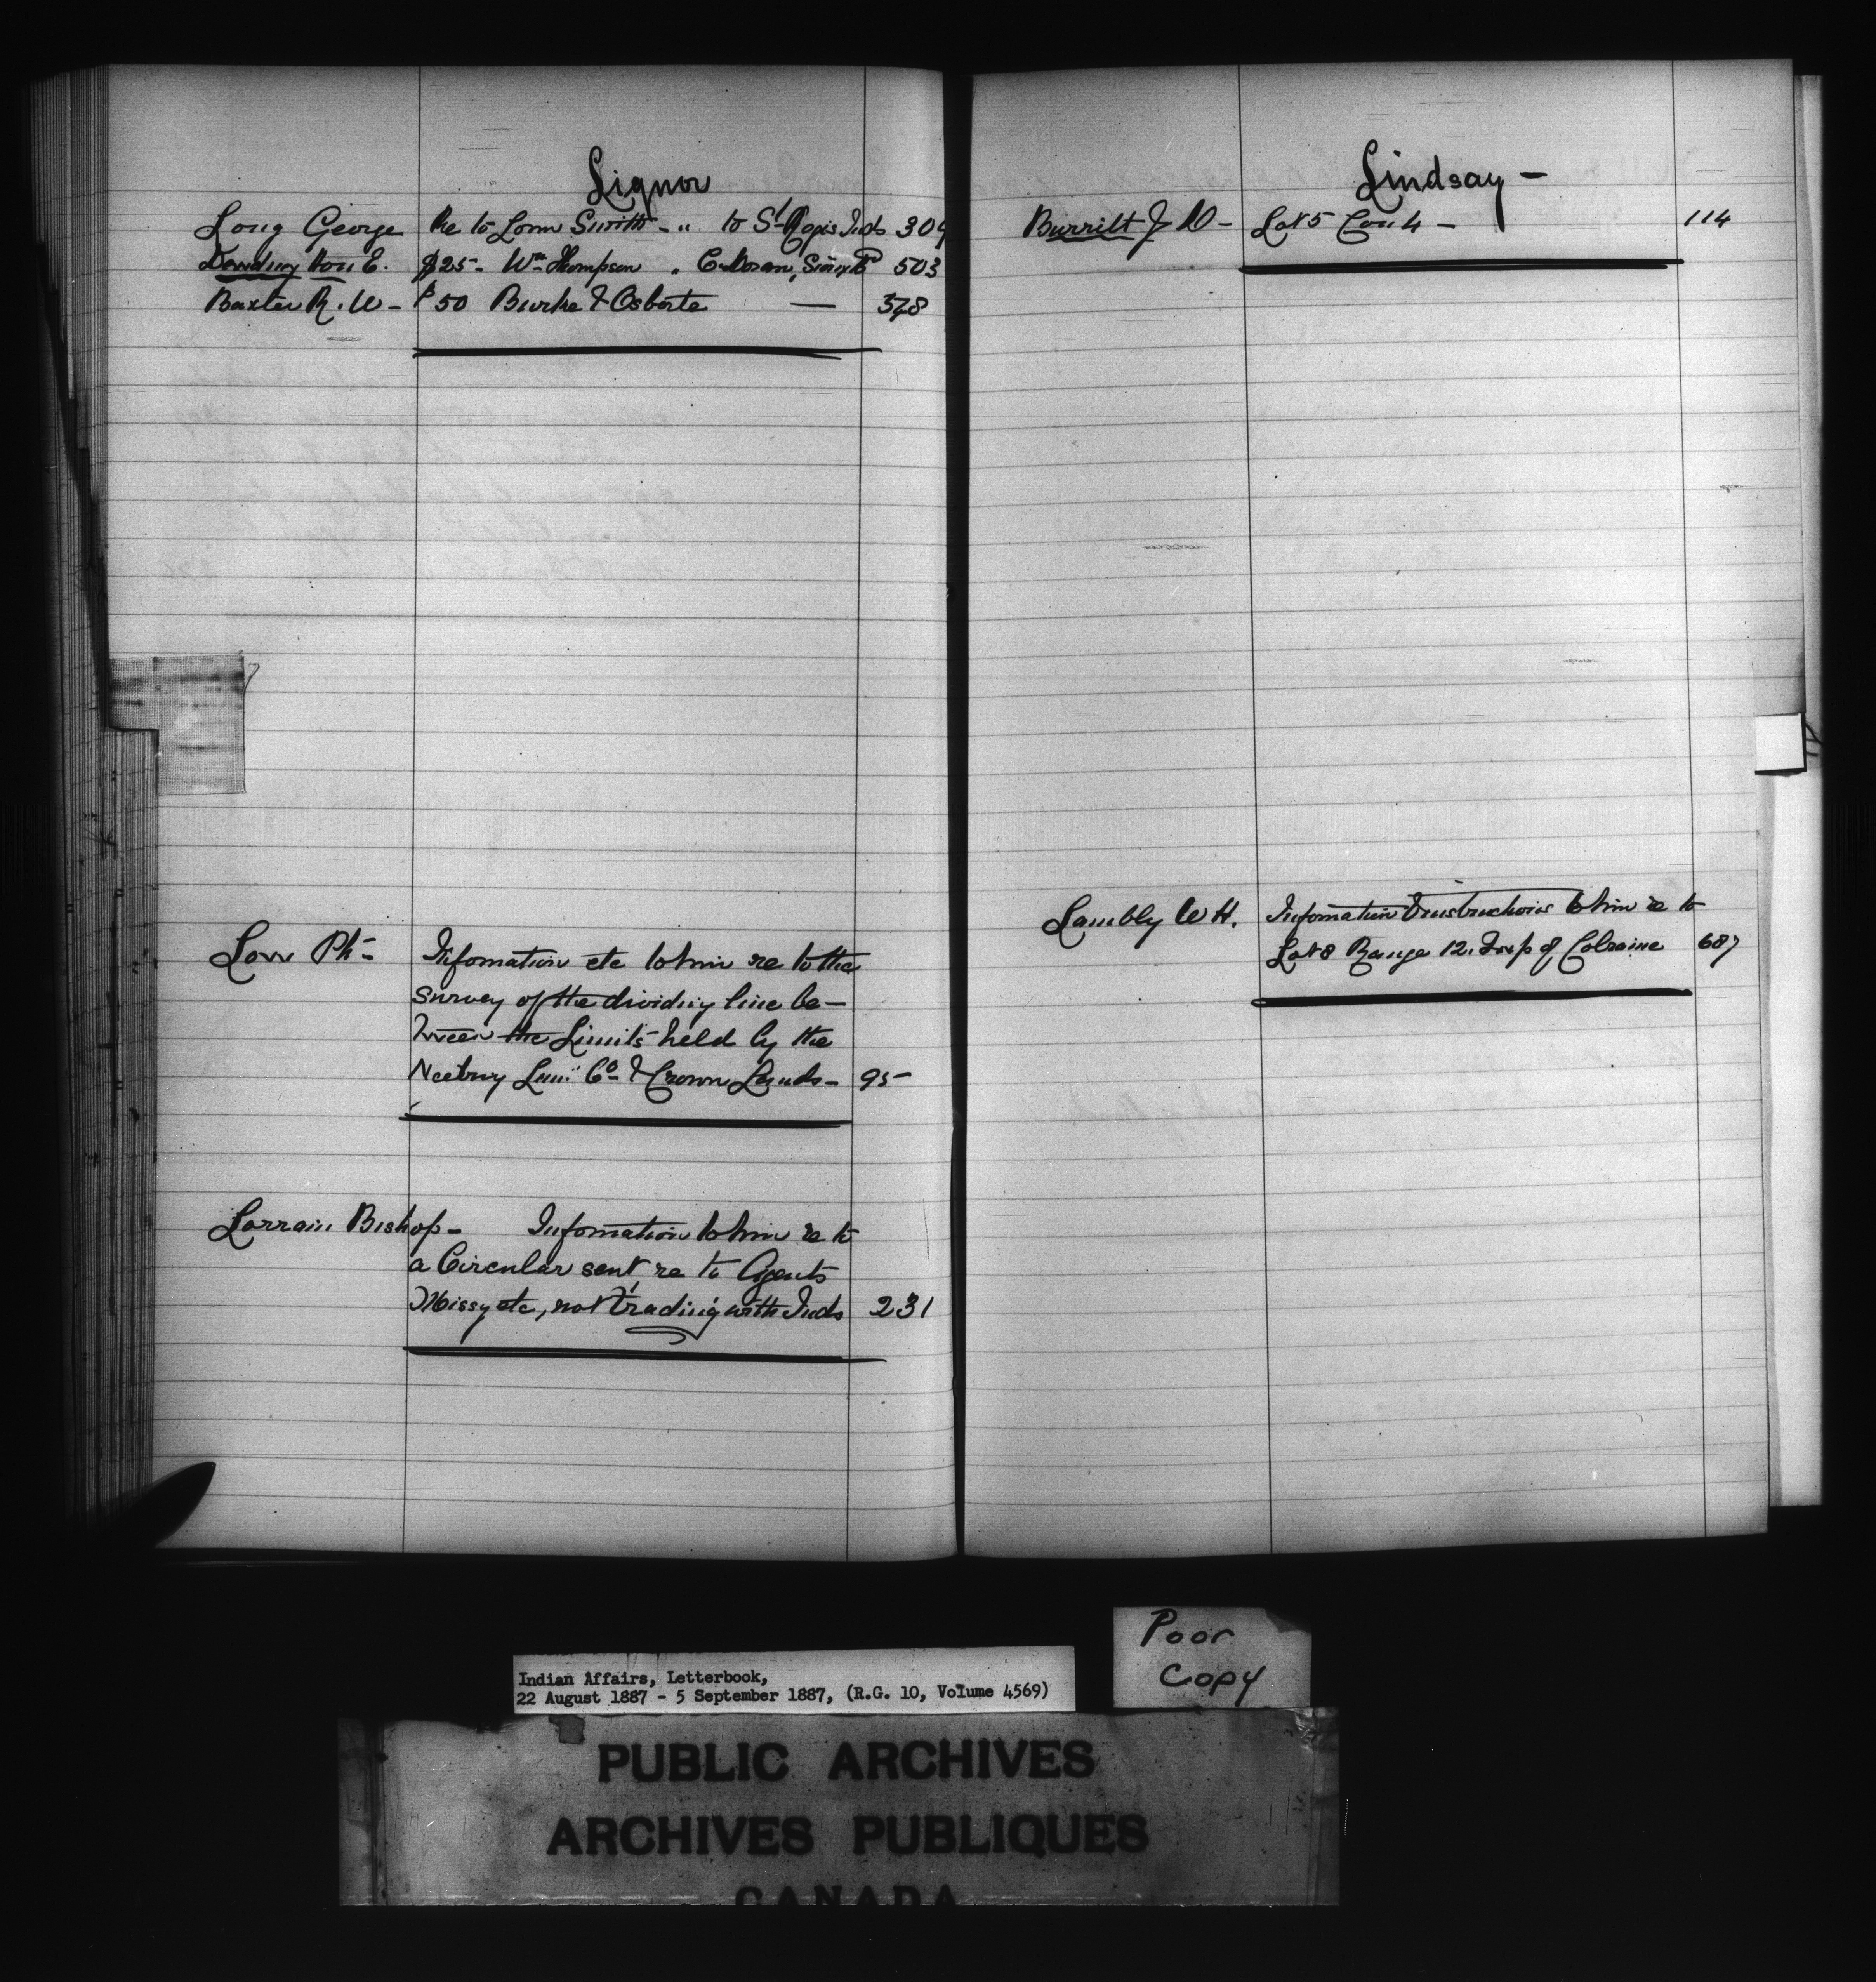 Liquor
Long George Re to Lorn Smith - " to St Regis Inds 304
Dewdney Hon E. $25 - Wm Thompson " C. Doran, 503
Baxter R. W - $50 Burke & 348
Low Ph -
Infomation etc to him re to the
survey of the dividing line be-
tween the Limits held by the
Lum: Co & Crown Lands - 95 -
Lorrain Bishop - Infomation to him re to
a Circular sent re to Agents
Missy etc, not trading with Inds 231
Lindsay -
Burritt J D - Lot 5 Con 4 - 114
Lambly W H. Infomation & instructions to him re to
Lot 8 Range 12. Twp of Colraine 687
Poor
Copy
Indian Affairs, Letterbook,
22 August 1887 - 5 September 1887, (R.G. 10, Volume 4569)
PUBLIC ARCHIVES
ARCHIVES PUBLIQUES
CANADA